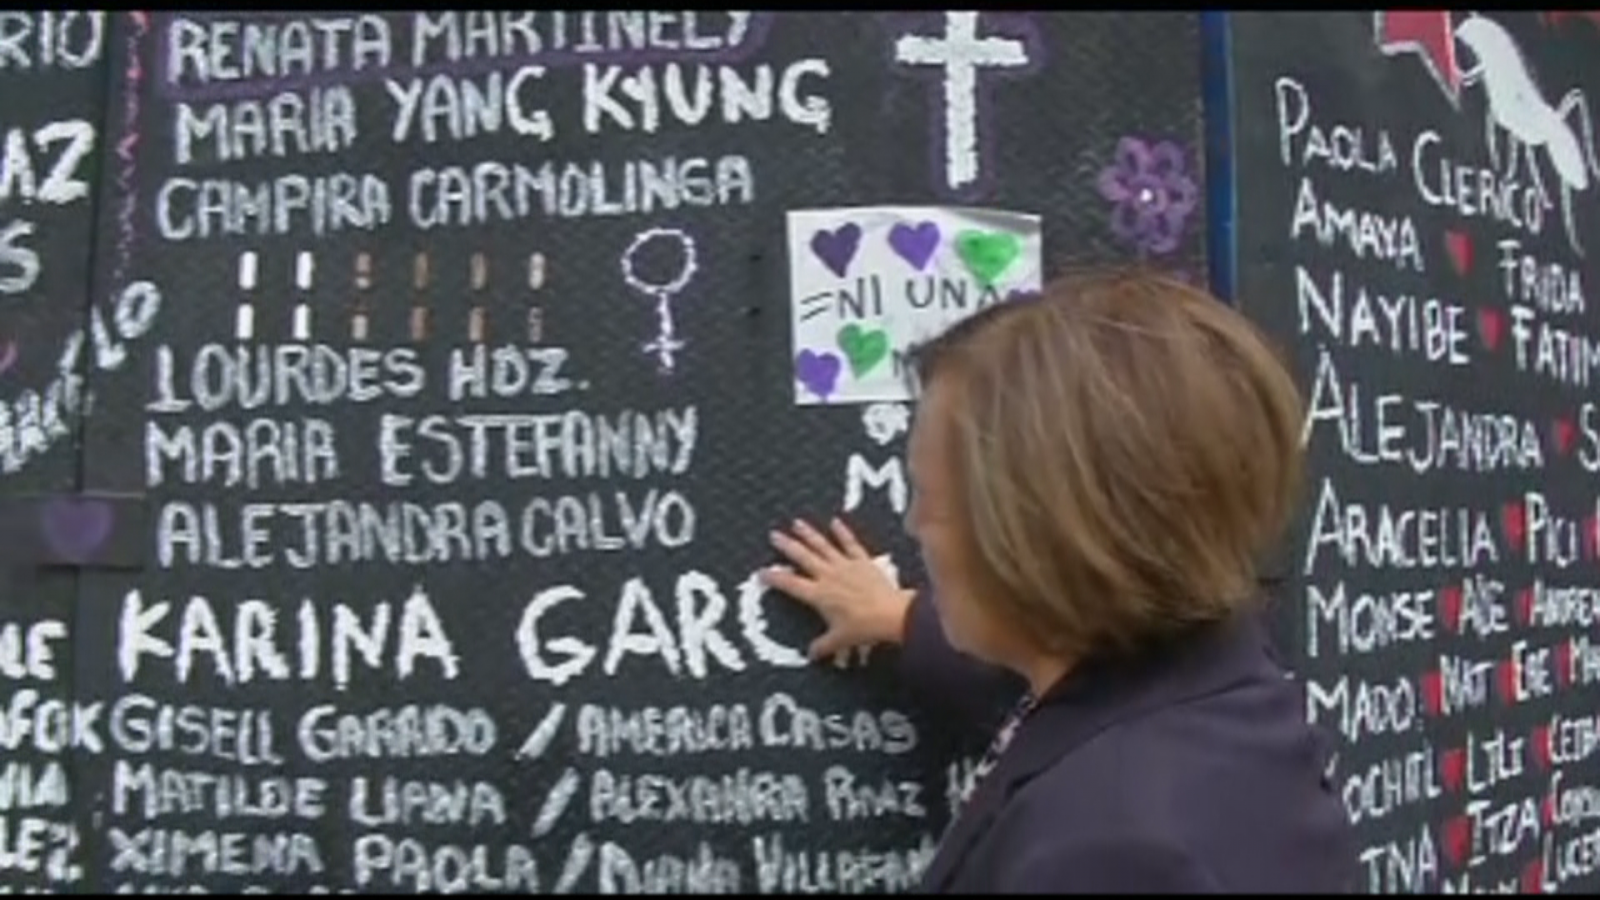 RIO
AZ
S
RENATA MARTINELY
MARIA YANG KYUNG
CAMPIRA CARMOLINGA
LOURDES HDZ.
MARIA ESTEFANNY
ALEJANDRA CALVO
KARINA GARC
GISELL GARRIDO / AMERICA CASAS
MATILDE LIANA / ALEXANDRA RUIZ
XIMENA PAOLA / DIANA
=NI UNA
M
PAOLA CLERICO
AMAYA FRIDA
NAYIBE FATIM
ALEJANDRA S
ARACELIA PICI
MONSE ALE ANDREA
MADO. NAT ERE MA
XOCHITL LILI
ITZA